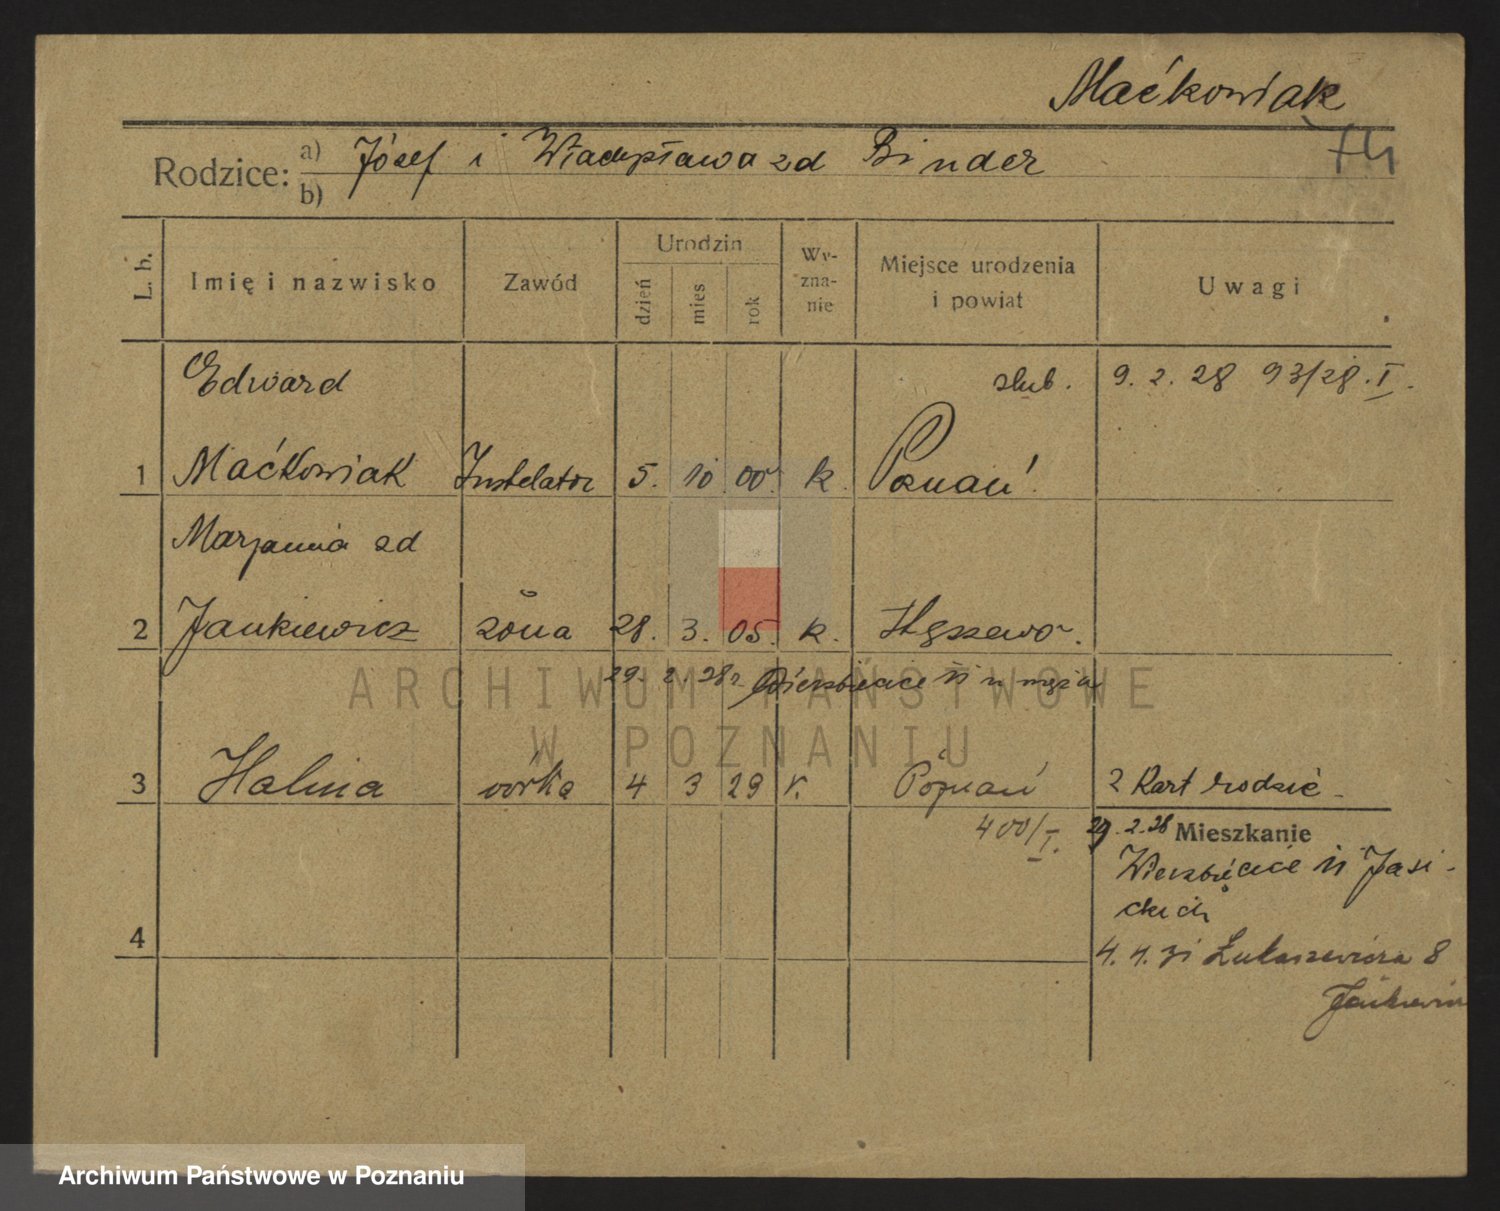 Maćkowiak
Rodzice: a) Józef i Władysława zd Binder
b)
L. b. Imię i nazwisko Zawód Urodzin dzień mies rok Wy-zna-nie Miejsce urodzenia i powiat Uwagi
Edward ślub. 9. 2. 28 93/28. I.
1 Maćkowiak Instelator 5. 10 00 k. Poznań
Marjanna zd
2 Jankiewicz żona 28. 3. 05. k.
29. 2. 28 Wierzbięcice 11 u męża
3 Halina córka 4 3 29 k. Poznań 2 Kart rodzic
400/I. 29. 2. 28 Mieszkanie
Wierzbięcice 11 Jasi-
ckich
4
4. 4. 31 Łukaszewicza 8
ARCHIWUM PAŃSTWOWE
W POZNANIU
Archiwum Państwowe w Poznaniu